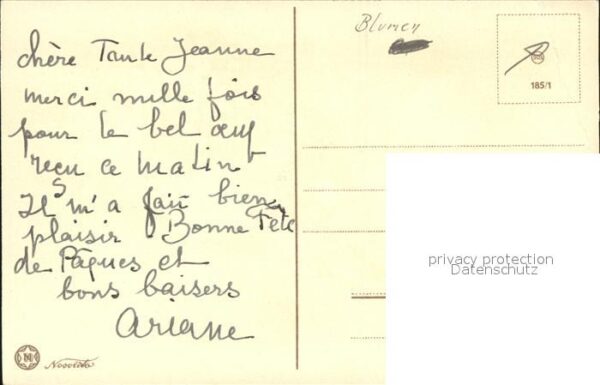 Blumen
chère Tante Jeanne
merci mille fois
pour le bel œuf
reçu ce matin
Ils m'a fait bien
plaisir Bonne Fête
de Pâques et
bons baisers
Ariane
185/1
privacy protection
Datenschutz
Novovita